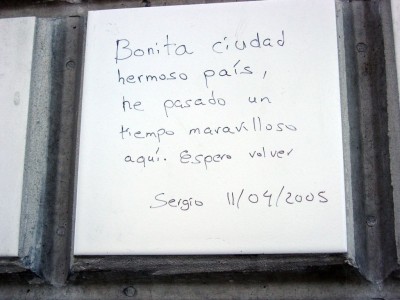 Bonita ciudad
hermoso país,
he pasado un
tiempo maravilloso
aquí. Espero volver
Sergio 11/04/2005